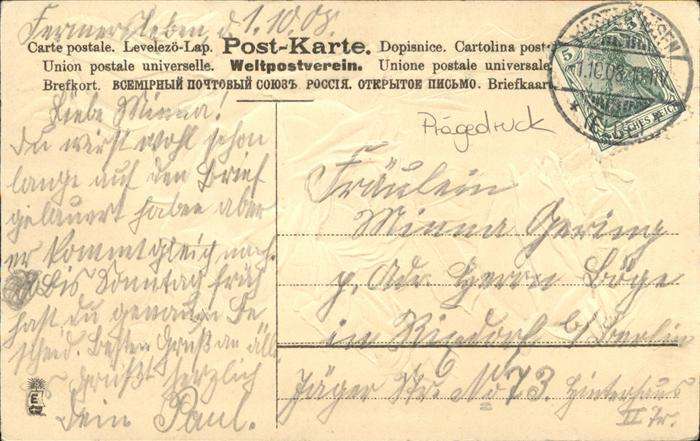 Fermersleben d. 1.10.08.
Carte postale. Levelező-Lap. Post-Karte. Dopisnice. Cartolina post
Union postale universelle. Weltpostverein. Unione postale universale
Brefkort. ВСЕМІРНЫЙ ПОЧТОВЫЙ СОЮЗЪ. РОССІЯ. ОТКРЫТОЕ ПИСЬМО. Briefkaart
5 5
1.10.08.
DEUTSCHES REICH
Prägedruck
Liebe Minna!
Du wirst wohl schon
lange auf den Brief
gelauert haben aber
er kommt gleich nach.
Bis Sonntag früh
hast du genauen Be
scheid. Besten Gruß an alle
grüßt herzlich
Dein Paul.
Fräulein
Minna Gering
p. Adr. Herrn Böge
in Rixdorf b/ Berlin
Jäger Str. No 73. Hinterhaus
II Tr.